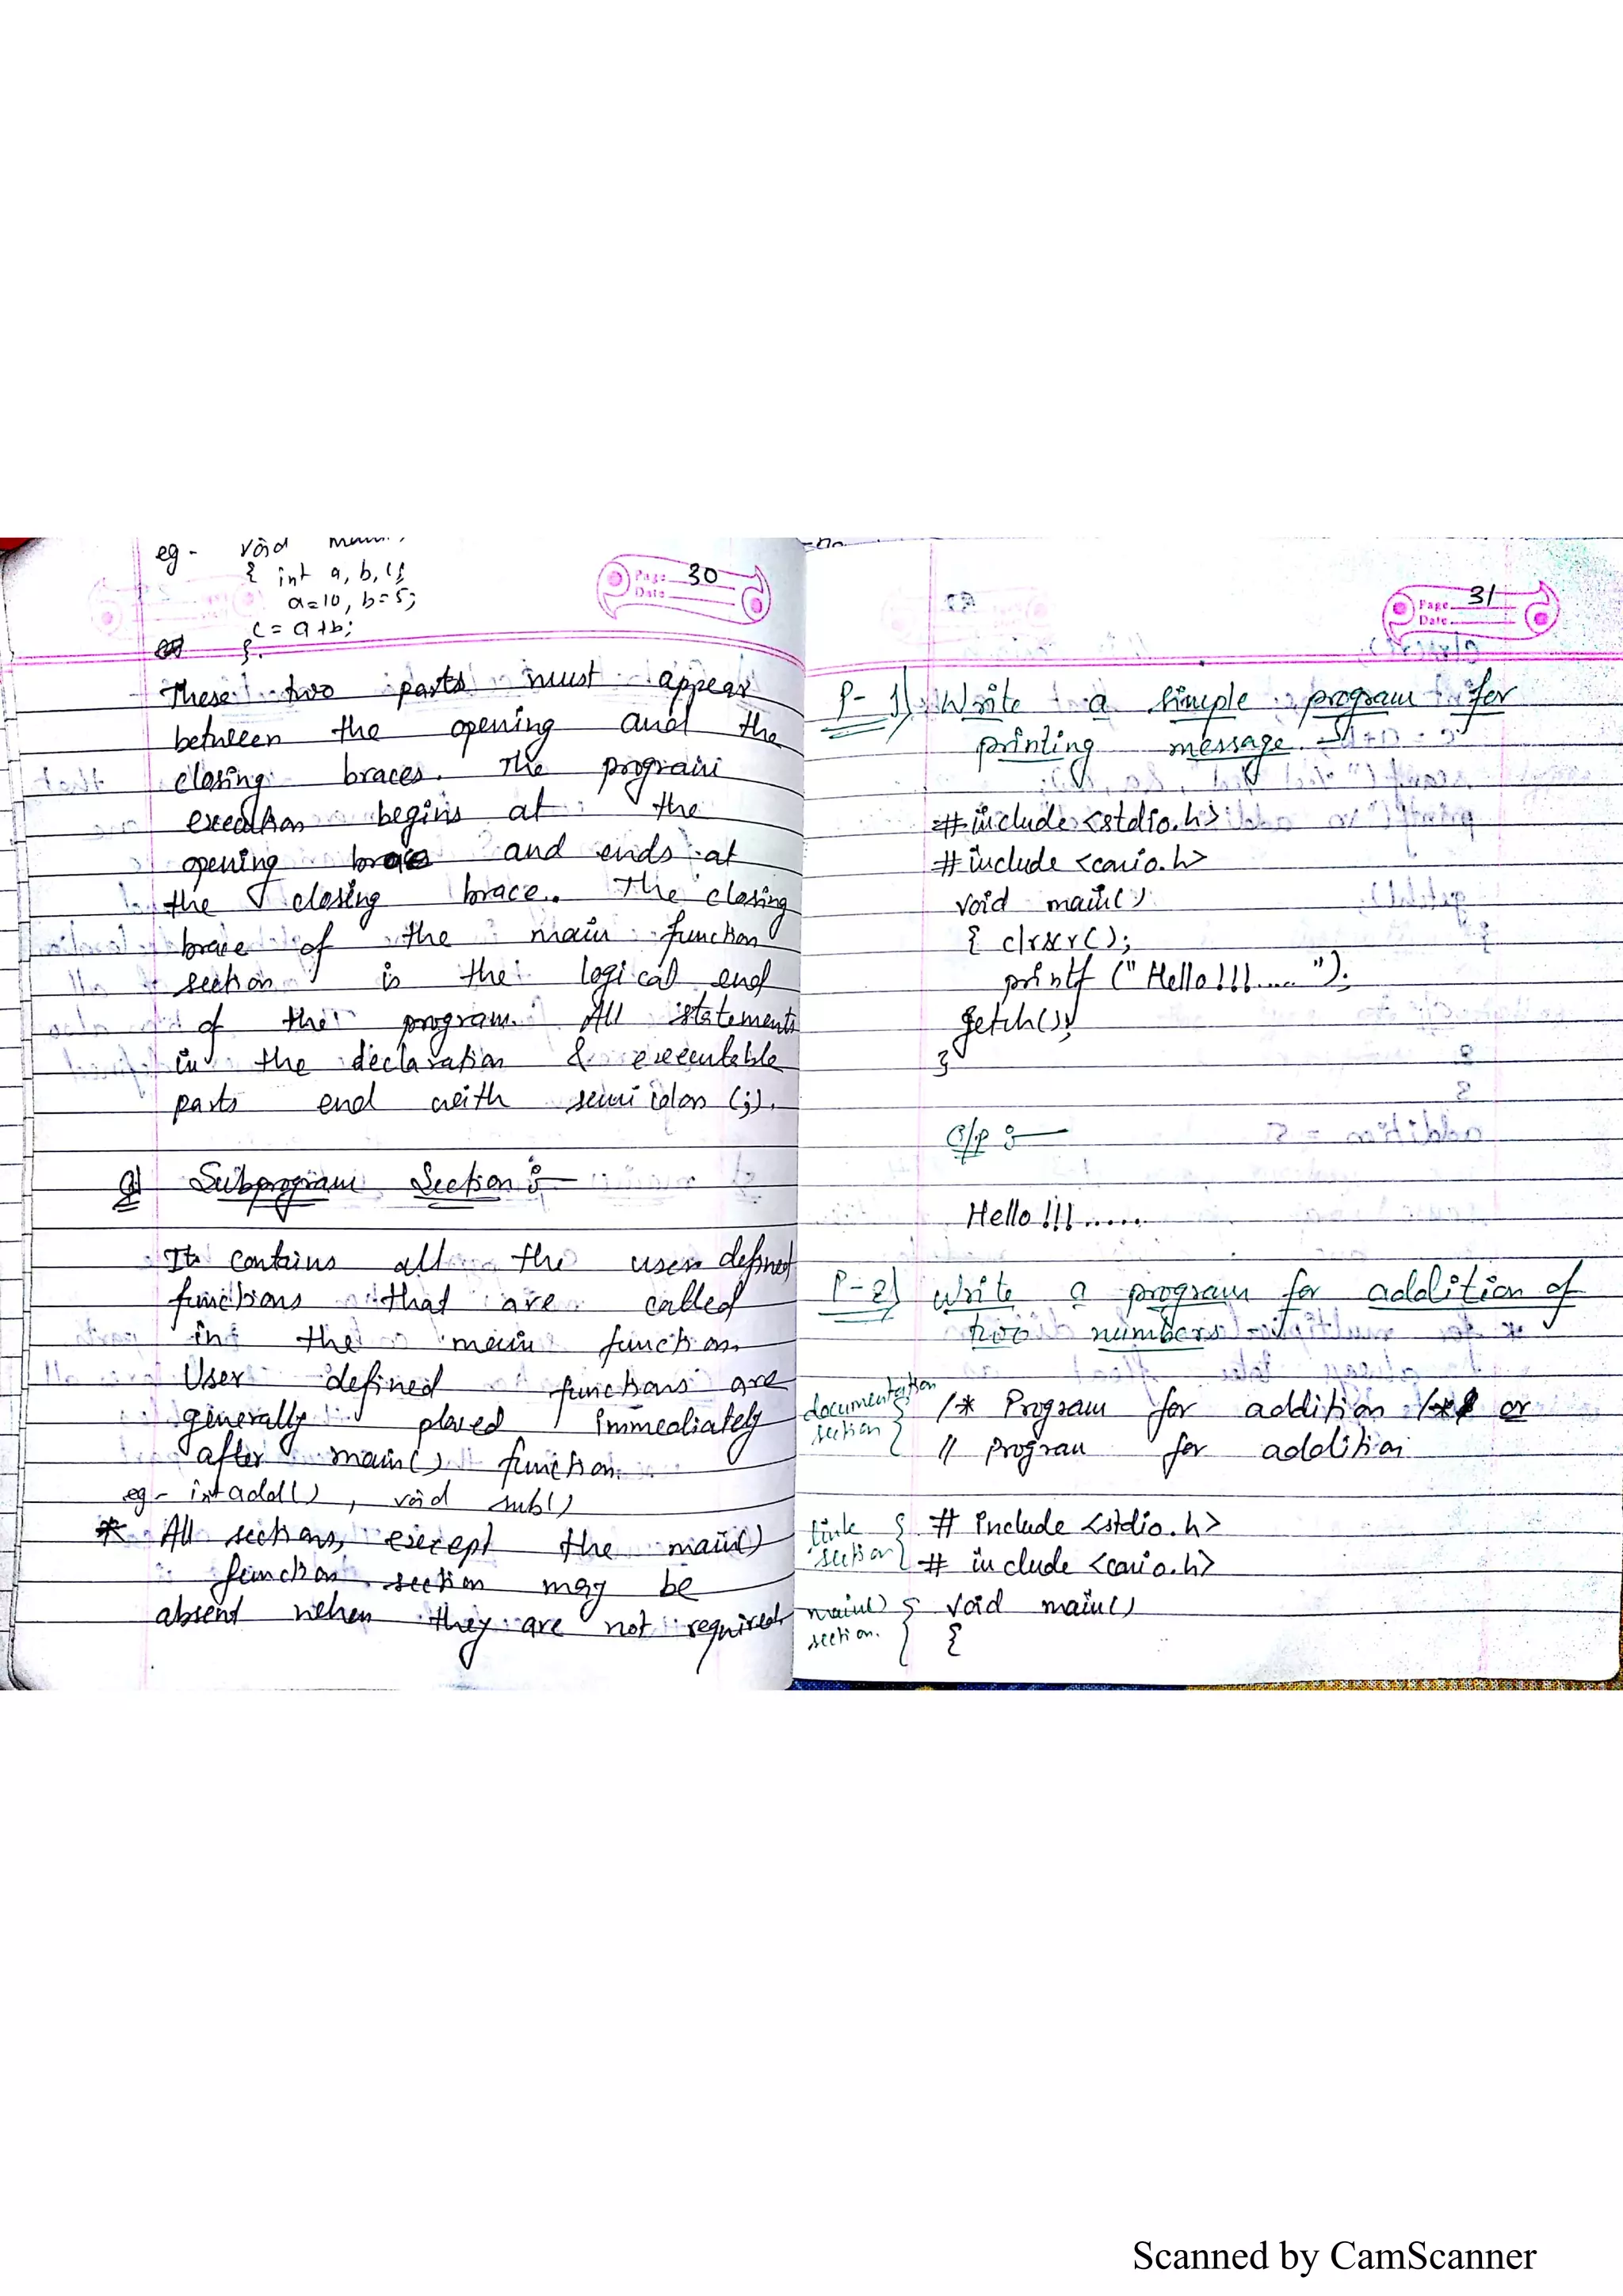 eg - void main
{ int a, b, c;
a=10, b=5;
c = a+b;
}.
Page 30
Date
These two parts must appear
between the opening and the
closing braces. The program
execution begins at the
opening brace and ends at
the closing brace. The closing
brace of the main function
section is the logical end
of the program. All statements
in the declaration & executable
parts end with semicolon (;).
Subprogram Section :-
It contains all the user defined
functions that are called
in the main function.
User defined functions are
generally placed immediately
after main() function.
eg - int add(), void sub()
* All sections, except the main()
function section may be
absent when they are not required
Page 31
Date
P-1) Write a simple program for
printing message.
#include <stdio.h>
#include <conio.h>
void main()
{ clrscr();
printf ("Hello!!!.....");
getch();
}
O/P :-
Hello !!!......
P-2) Write a program for addition of
two numbers
documentation section { /* Program for addition /* or
// Program for addition
link section { # include <stdio.h>
# include <conio.h>
main() section. { void main()
{
Scanned by CamScanner